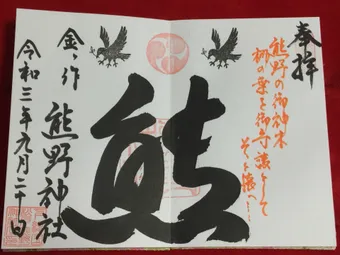 奉拝
熊野の御神木
梛の葉を御守護として
そっと懐へ…
熊
金ヶ作
熊野神社
令和三年九月二十日